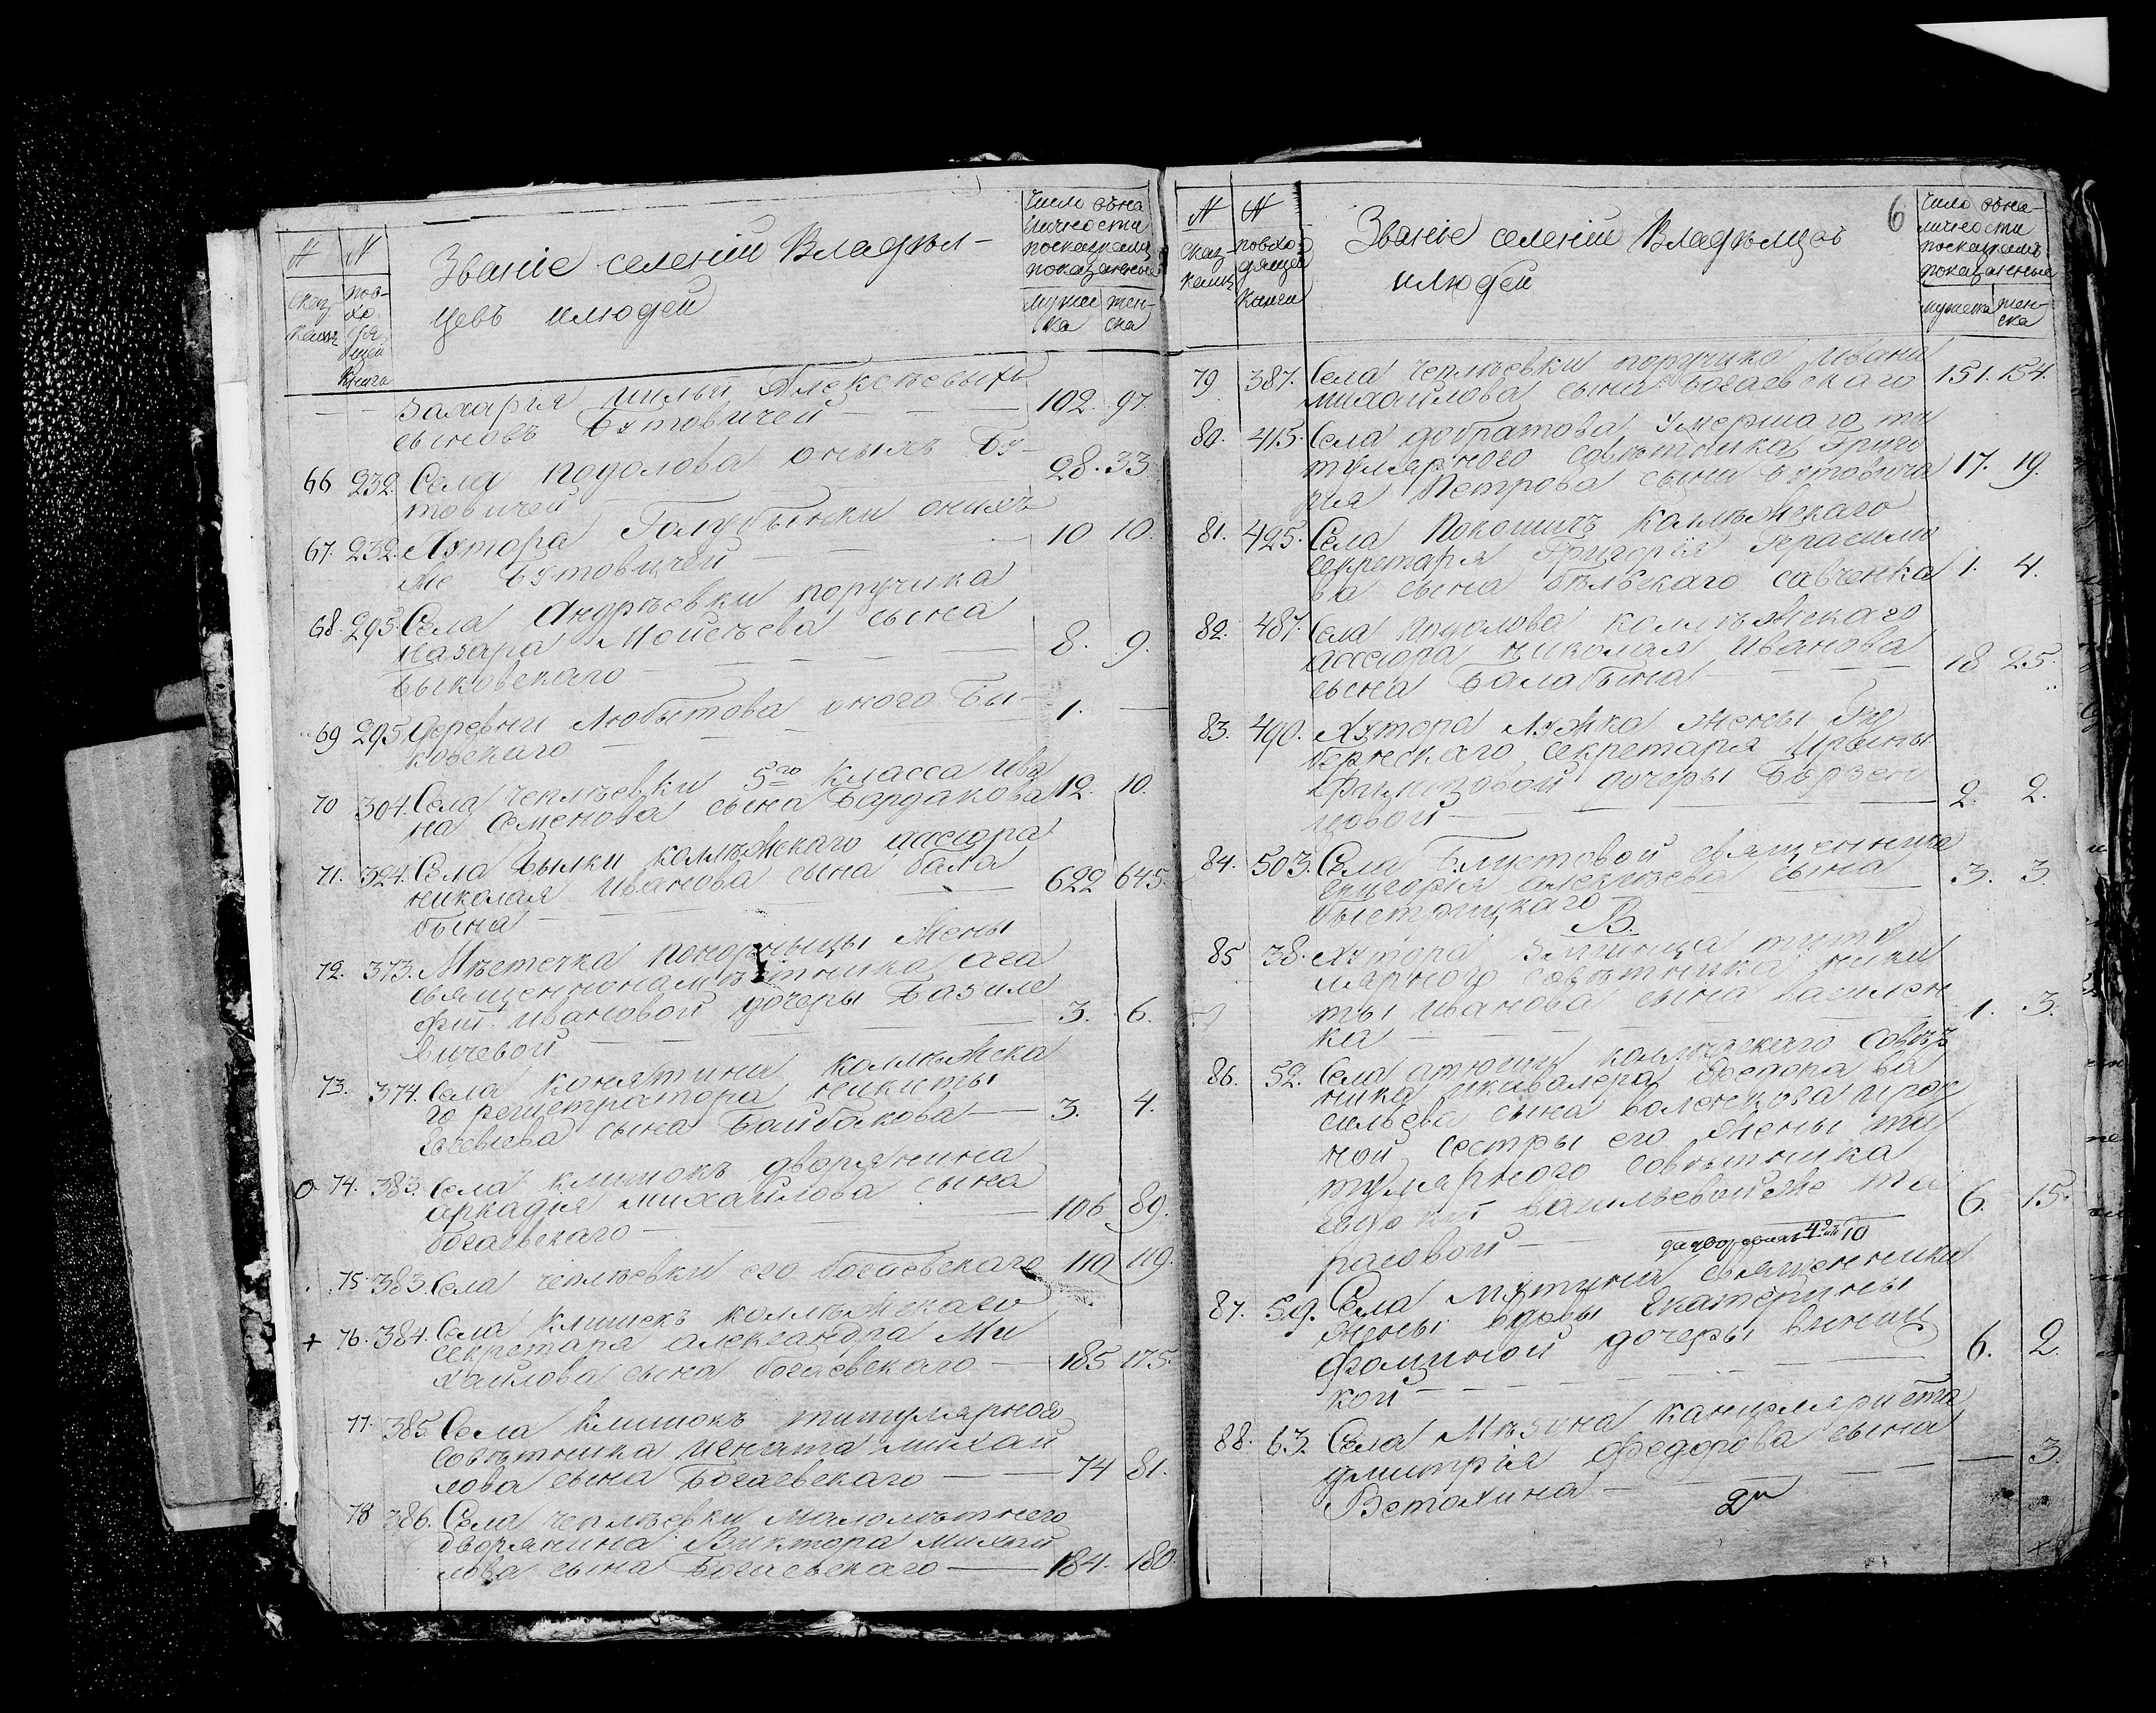 N N Званіе селеніи Владѣл-
цевъ илюдей
сказ
камъ
пов-
хо
дя
щей
книги
Число вѣна
личности
посказкамъ
показанные
мужес
ка
жен-
ска
захарія Алексѣевыхъ
сыновъ Бутовичей 102. 97.
66 232. Села Подолова оныхъ Бу-
товичей 28. 33
67. 232. Хутора Голубынки оныхъ
же Бутовичей 10 10.
68. 295. Села Андрѣевки поручика
Назара Мойсѣева сына
Быковскаго 8. 9.
69 295. Деревни Любитова оного Бы-
ковскаго 1. —
70 304. Села чеплѣевки 5го класса Ива
на Семенова сына Бардакова 12. 10.
71. 324. Села Быльки коллѣжскаго ассесора
николая Иванова сына бала
бына 622 645.
72. 373. Мѣстечка понорницы жены
священнонамѣстника ага
фіи ивановой дочеры Базиле
вичевой 3. 6.
73. 374. Села конятина коллѣжска
го регистратора никиты
Евсевіева сына Байбакова 3. 4.
О 74. 383. Села клишокъ дворянина
аркадія михайлова сына
богаевскаго 106 89.
75. 383. Села чеплѣевки его богаевскаго 119 119.
+ 76. 384. Села клишекъ коллѣжскаго
секретаря александра Ми
хайлова сына богаевскаго 185 175.
77. 385. Села клишокъ титулярного
совѣтника игната михай
лова сына Богаевскаго 74 81.
78 386. Села чеплѣевки малолѣтнего
дворянина Виктора михай
лова сына Богаевскаго 184. 180.
6
N N Званіе селеніи Владѣлцевъ
илюдей
сказ-
камъ
повхо-
дящей
книги
Число вѣна-
личности
посказкамъ
показанные
мужеска
жен-
ска
79 387. Села чеплѣевки поручика Ивана
михайлова сына Богаевскаго 151. 154.
80. 415. Села добратова умершаго ти
тулярного совѣтника григо
рія Петрова сына Бутовича 17. 19.
81. 425. Села Покошичъ коллѣжскаго
секретаря Григорія Герасимо
ва сына бѣльскаго савченка 1. 4.
82. 487. Села подолова коллѣжскаго
ассесора николая Иванова
сына Балабына 18 25.
83. 490. Хутора Лужка жены гу
бернскаго секретаря Ирины
дочеры Борзен
цовой 2. 2.
84. 503. Села Блистовой священника
григорія алексѣева сына
быстрицкаго 3. 3.
В.
85 38. Хутора титу
лярного совѣтника ники
ты иванова сына василен
ка 1. 3.
86. 52. Села коллѣжскаго Совѣт
ника икавалера Федора ва
сильева сына валенкова ирод
ной сестры его жены ти
тулярного совѣтника
Евдокіи васильевой же та
расовой 6. 15.
87. 59. Села Мутина священника
жены вдовы Екатерины
фоминой дочеры виниц
кой 6. 2.
88. 63. Села Мѣзина канцеляриста
дмитрія Федорова сына
Ветохина — 3.